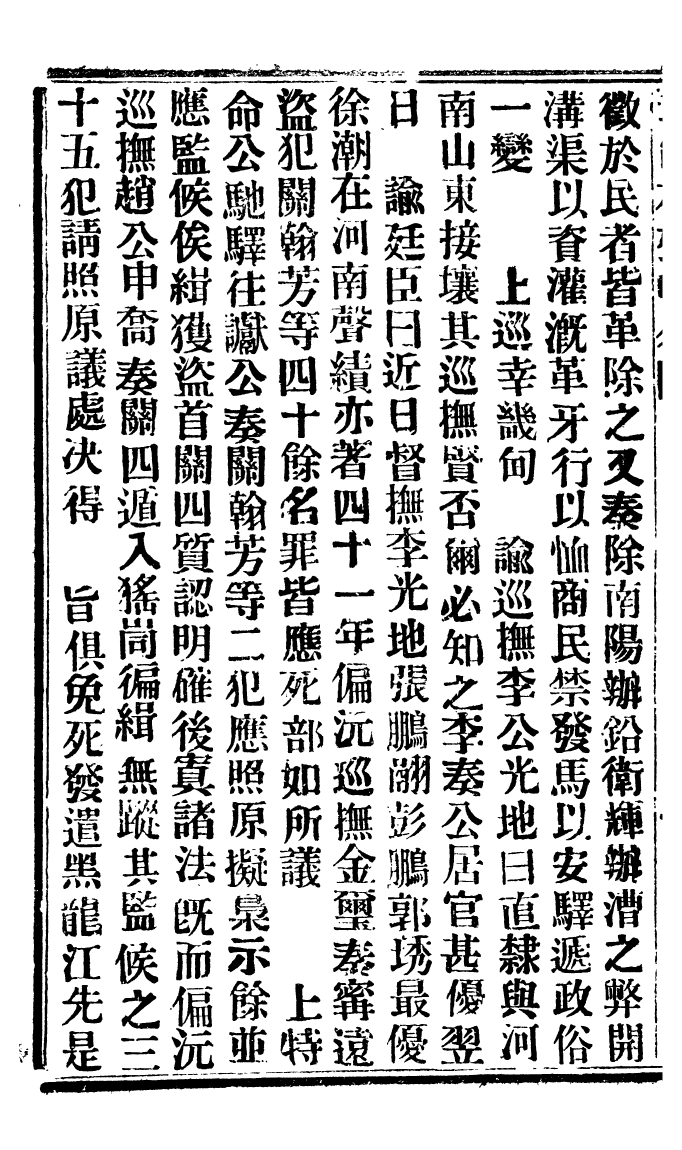 徵於民者皆革除之又奏除南陽辦鉛衛輝辦漕之弊開
溝渠以資灌溉革牙行以恤商民禁發馬以安驛遞政俗
一變　　上巡幸畿甸　諭巡撫李公光地曰直隸與河
南山東接壤其巡撫賢否爾必知之李奏公居官甚優翌
日　諭廷臣曰近日督撫李光地張鵬翮彭鵬郭琇最優
徐潮在河南聲績亦著四十一年偏沅巡撫金璽奏甯遠
盜犯關翰芳等四十餘名罪皆應死部如所議　　上特
命公馳驛往讞公奏關翰芳等二犯應照原擬梟示餘並
應監候俟緝獲盜首關四質認明確後寘諸法旣而偏沅
巡撫趙公申喬奏關四遁入猺峝徧緝無蹤其監候之三
十五犯請照原議處決得　旨俱免死發遣黑龍江先是